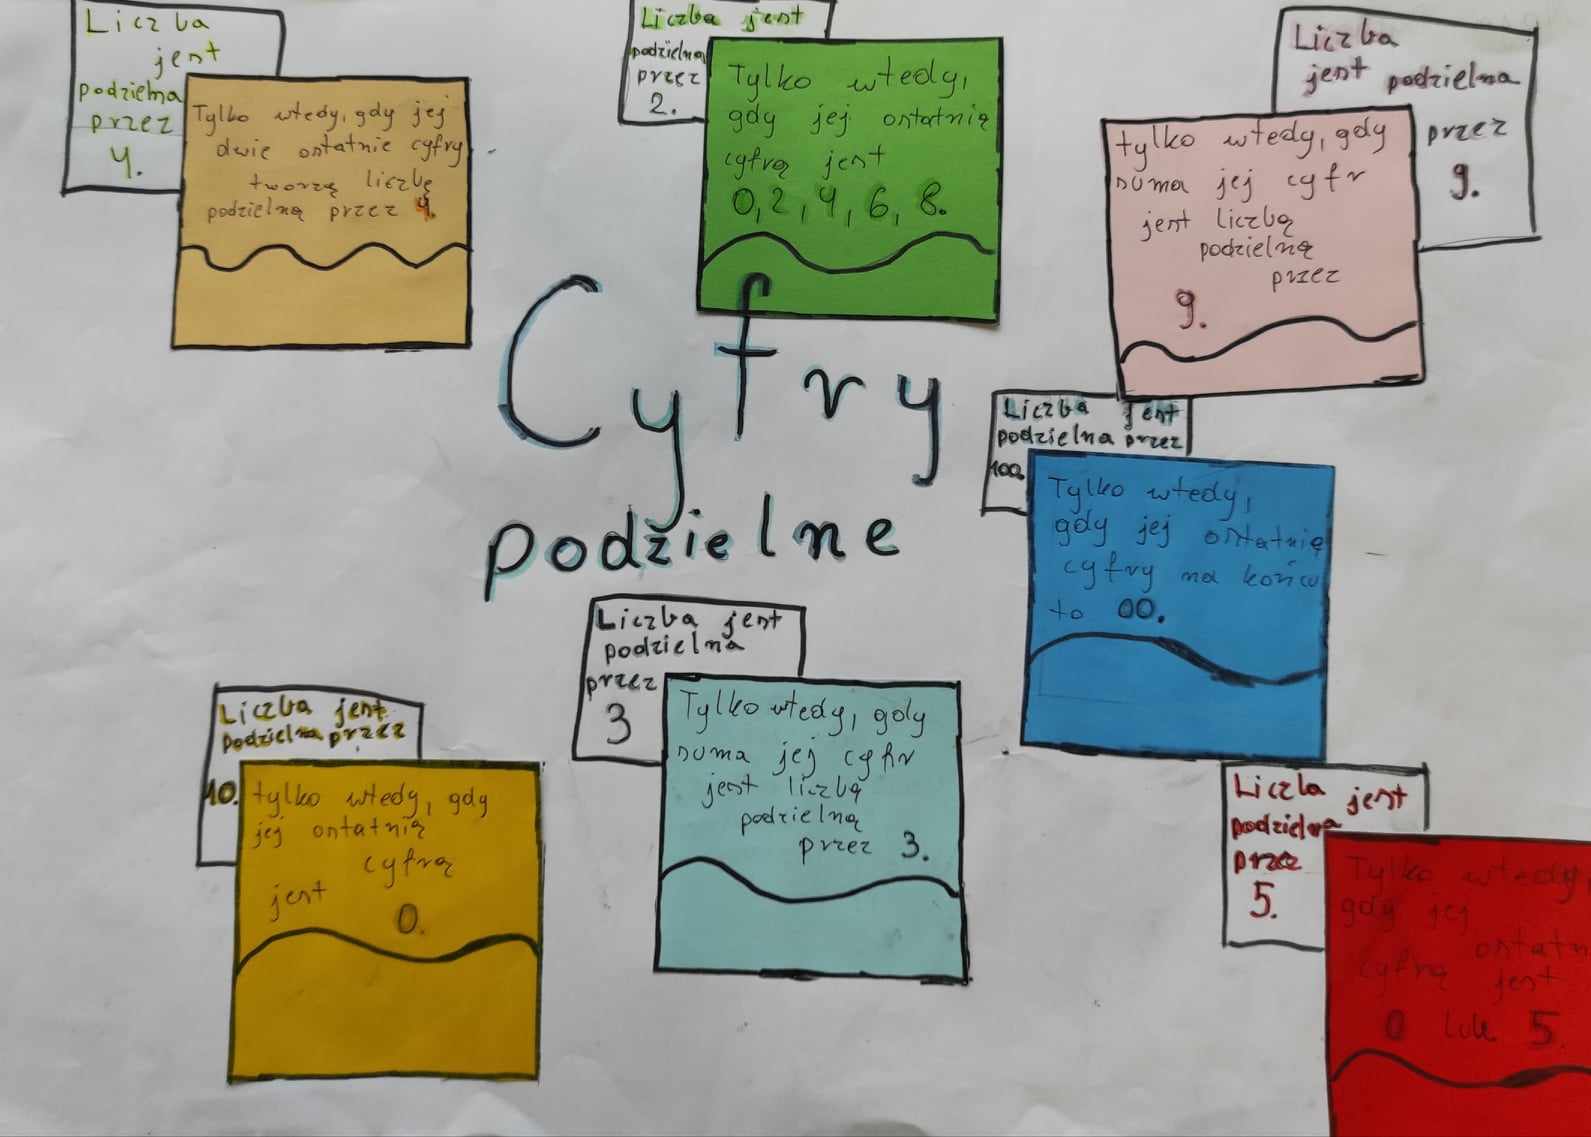 Liczba
jest
podzielna
przez
4.
Tylko wtedy, gdy jej
dwie ostatnie cyfry
tworzą liczbę
podzielną przez 4.
Liczba jest
podzielna
przez
2.
Tylko wtedy,
gdy jej ostatnią
cyfrą jest
0, 2, 4, 6, 8.
Liczba
jest podzielna
przez
9.
tylko wtedy, gdy
suma jej cyfr
jest liczbą
podzielną
przez
9.
Cyfry
podzielne
Liczba jest
podzielna przez
100.
Tylko wtedy,
gdy jej ostatnią
cyfry na końcu
to 00.
Liczba jest
podzielna
przez
3
Tylko wtedy, gdy
suma jej cyfr
jest liczbą
podzielną
przez 3.
Liczba jest
podzielna przez
10.
tylko wtedy, gdy
jej ostatnią
cyfrą
jest
0.
Liczba jest
podzielna
przez
5.
Tylko wtedy,
gdy jej
ostatn
cyfrą jest
0 lub 5.